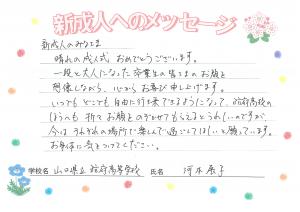 新成人へのメッセージ
新成人のみなさま
晴れの成人式 おめでとうございます。
一段と大人になった卒業生の皆さまのお顔を
想像しながら、心からお喜び申し上げます。
いつでもどこでも自由に行き来できるようになって、防府高校の
ほうへも 折々お顔をのぞかせてもらえるとうれしいのですが、
今は それぞれの場所で楽しんで過ごしてほしいと願っています。
お身体に気をつけてください。
学校名 山口県立防府高等学校 氏名 河本 展子